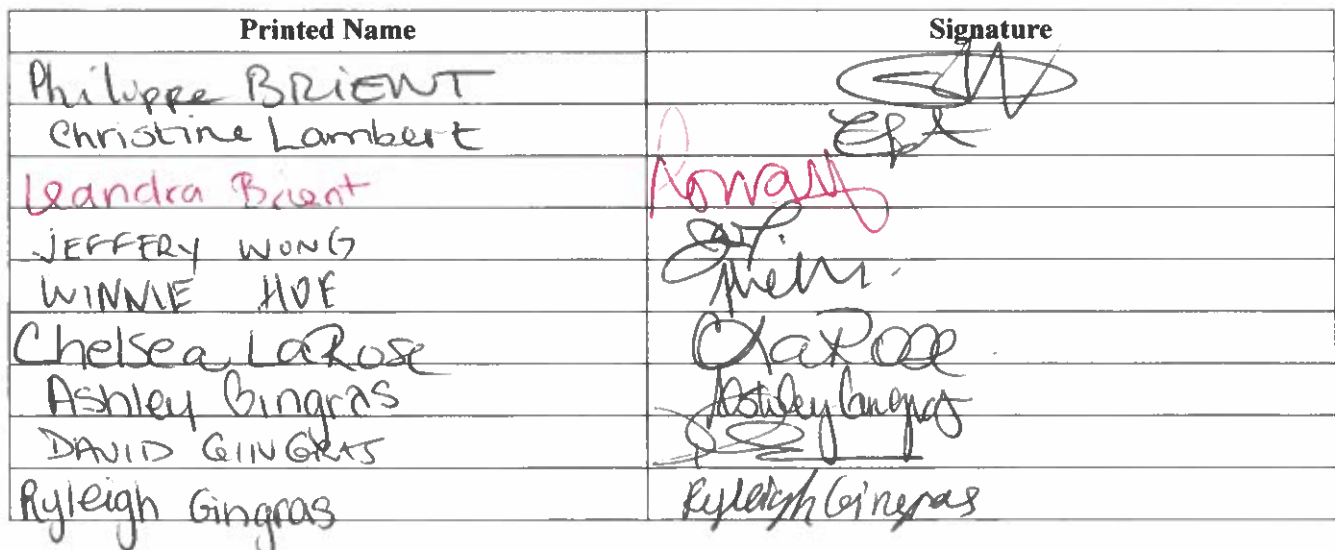 Printed Name Signature
Philippe BRIENT
Christine Lambert
Leandra Brient
JEFFERY WONG
WINNIE HOE
Chelsea LaRose CLaRose
Ashley Gingras Ashley Gingras
DAVID GINGRAS
Ryleigh Gingras Ryleigh Gingras